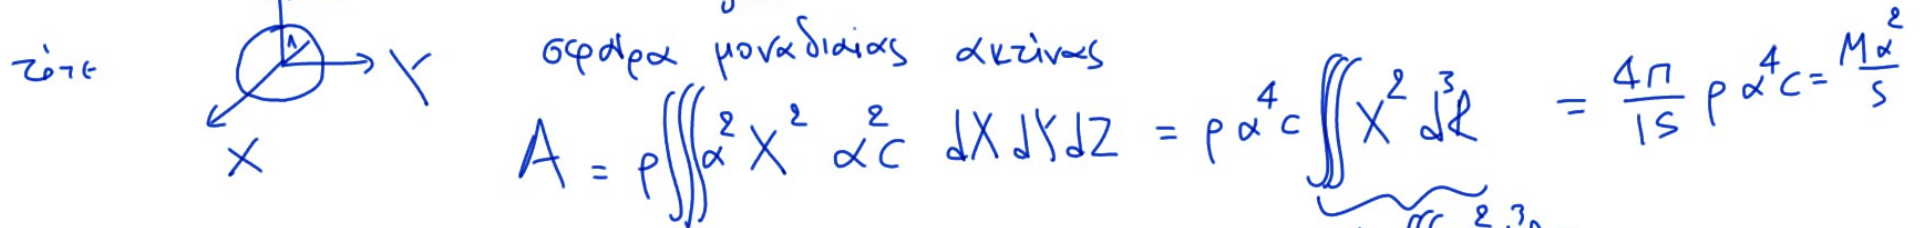 τότε
1
Y
X
σφαίρα μοναδιαίας ακτίνας
A = ρ∭α²X² α²c dXdYdZ = ρα⁴c ∭X² d³R = 4π/15 ρα⁴c = Mα²/5